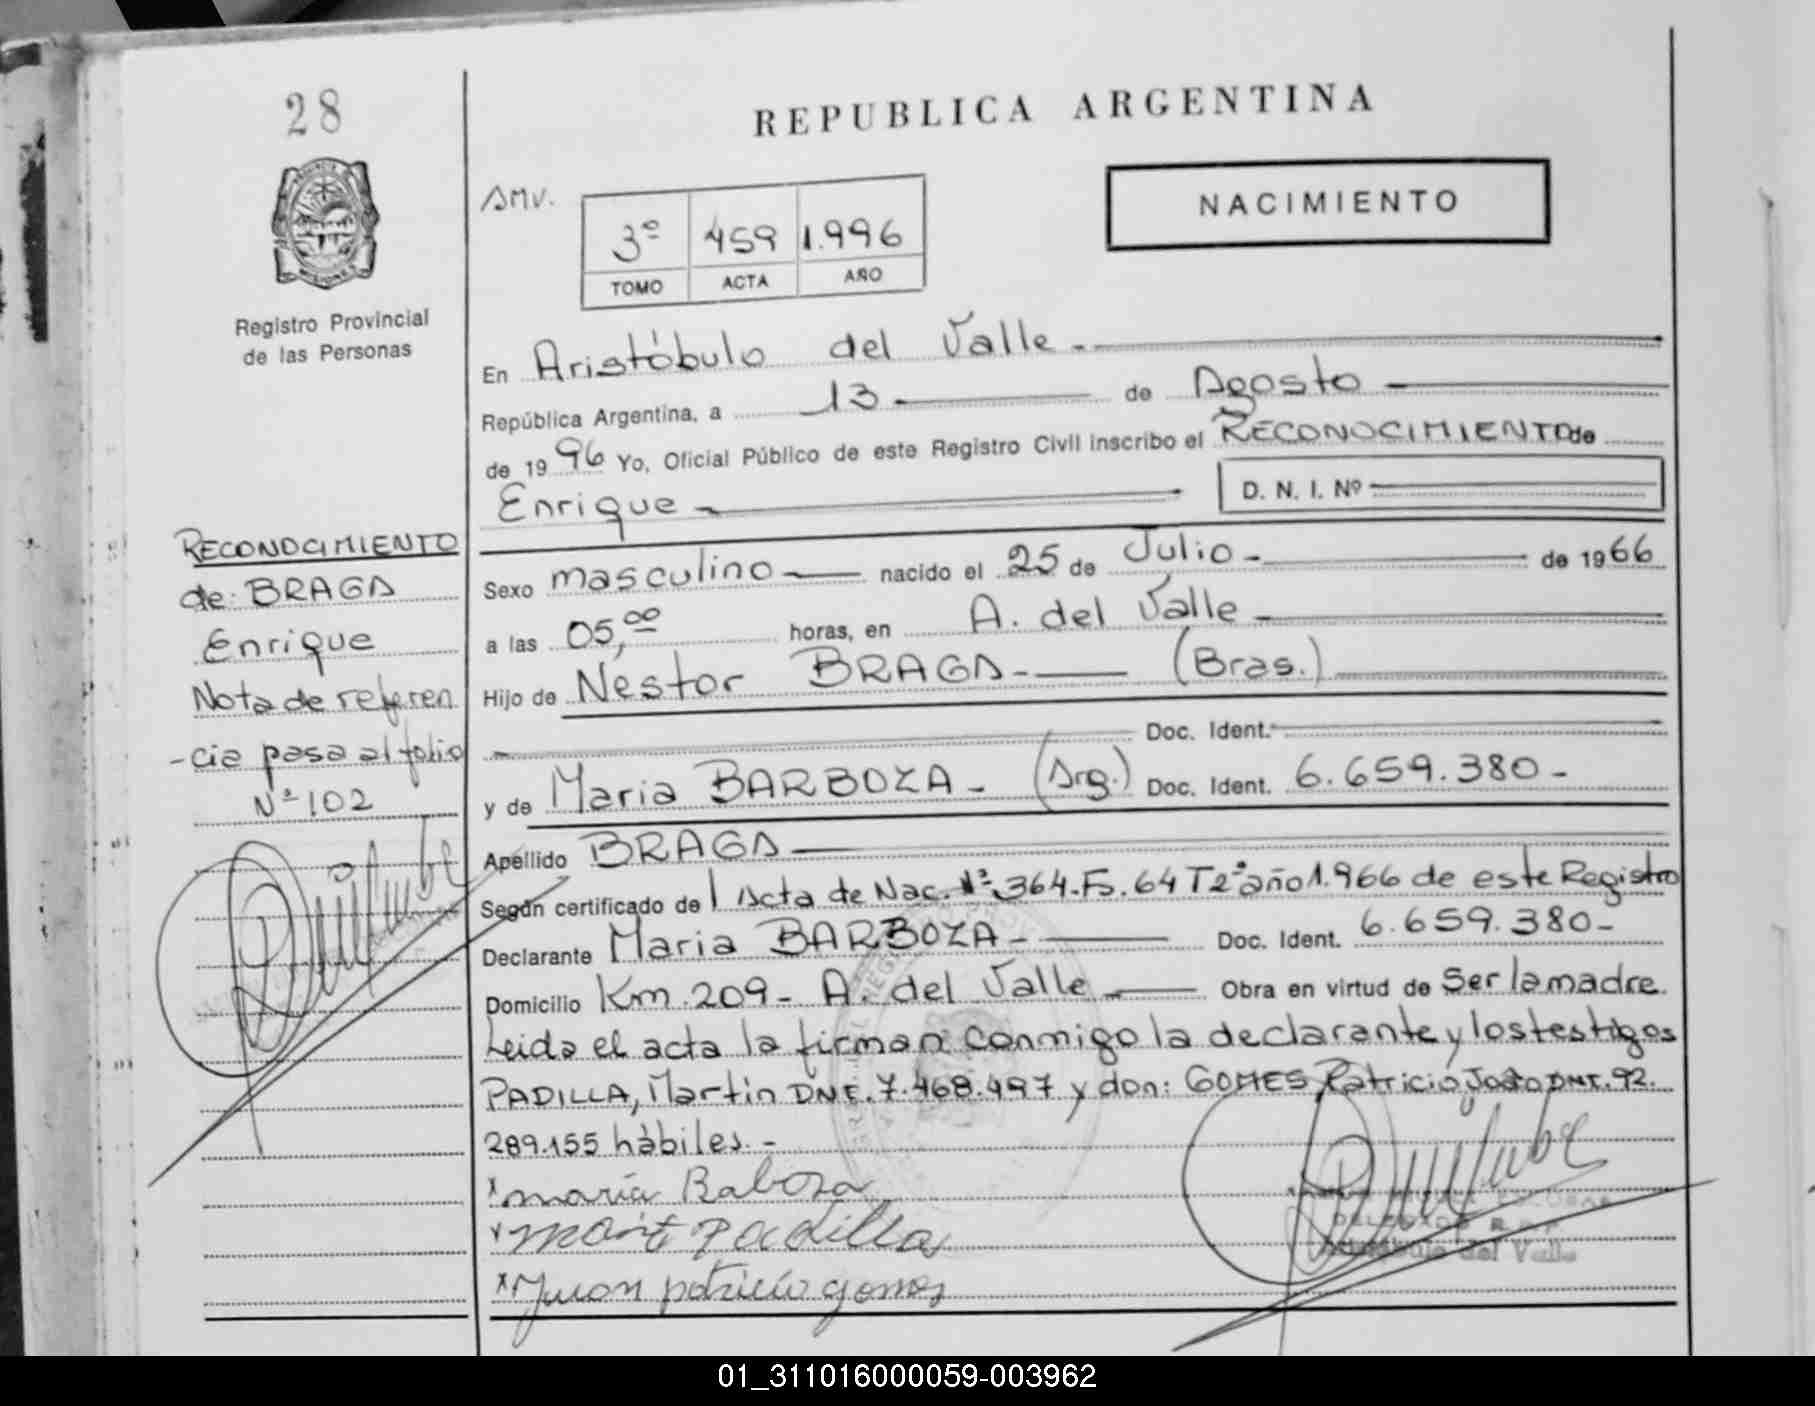 28
REPUBLICA ARGENTINA
NACIMIENTO
SMV.
3º 459 1.996
TOMO ACTA AÑO
Registro Provincial
de las Personas
En Aristóbulo del Valle
República Argentina, a 13 de Agosto
de 1996 Yo, Oficial Público de este Registro Civil inscribo el RECONOCIMIENTO de
Enrique D. N. I. Nº
RECONOCIMIENTO
de: BRAGA
Enrique
Nota de referen
-cia pasa al folio
Nº 102
Sexo masculino nacido el 25 de Julio - de 1966
a las 05,00 horas, en A. del Valle
Hijo de Nestor BRAGA- (Bras.)
Doc. Ident.
y de Maria BARBOZA - (Arg.) Doc. Ident. 6.659.380-
Apellido BRAGA
Según certificado de Acta de Nac. Nº 364-Fs. 64 T2º año 1.966 de este Registro
Declarante Maria BARBOZA - Doc. Ident. 6.659.380-
Domicilio Km. 209- A. del Valle Obra en virtud de Ser la madre.
Leida el acta la firman conmigo la declarante y los testigos
PADILLA, Martin DNI. 7.468.497 y don: GOMES Patricio DNI. 92.
289.155 hábiles.-
x maria Baboza
x Padilla
x Juan patricio gomes
DELEGADO R.P.P.
Aristobulo del Valle
01_311016000059-003962